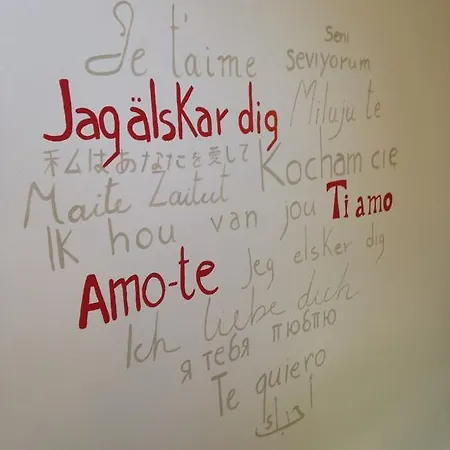 Je t'aime
Seni
seviyorum
Jag älskar dig
Miluju te
私はあなたを愛して
Kocham cię
Maite Zaitut
Ti amo
IK hou van jou
Amo-te
Jeg elsker dig
Ich liebe dich
я тебя люблю
Te quiero